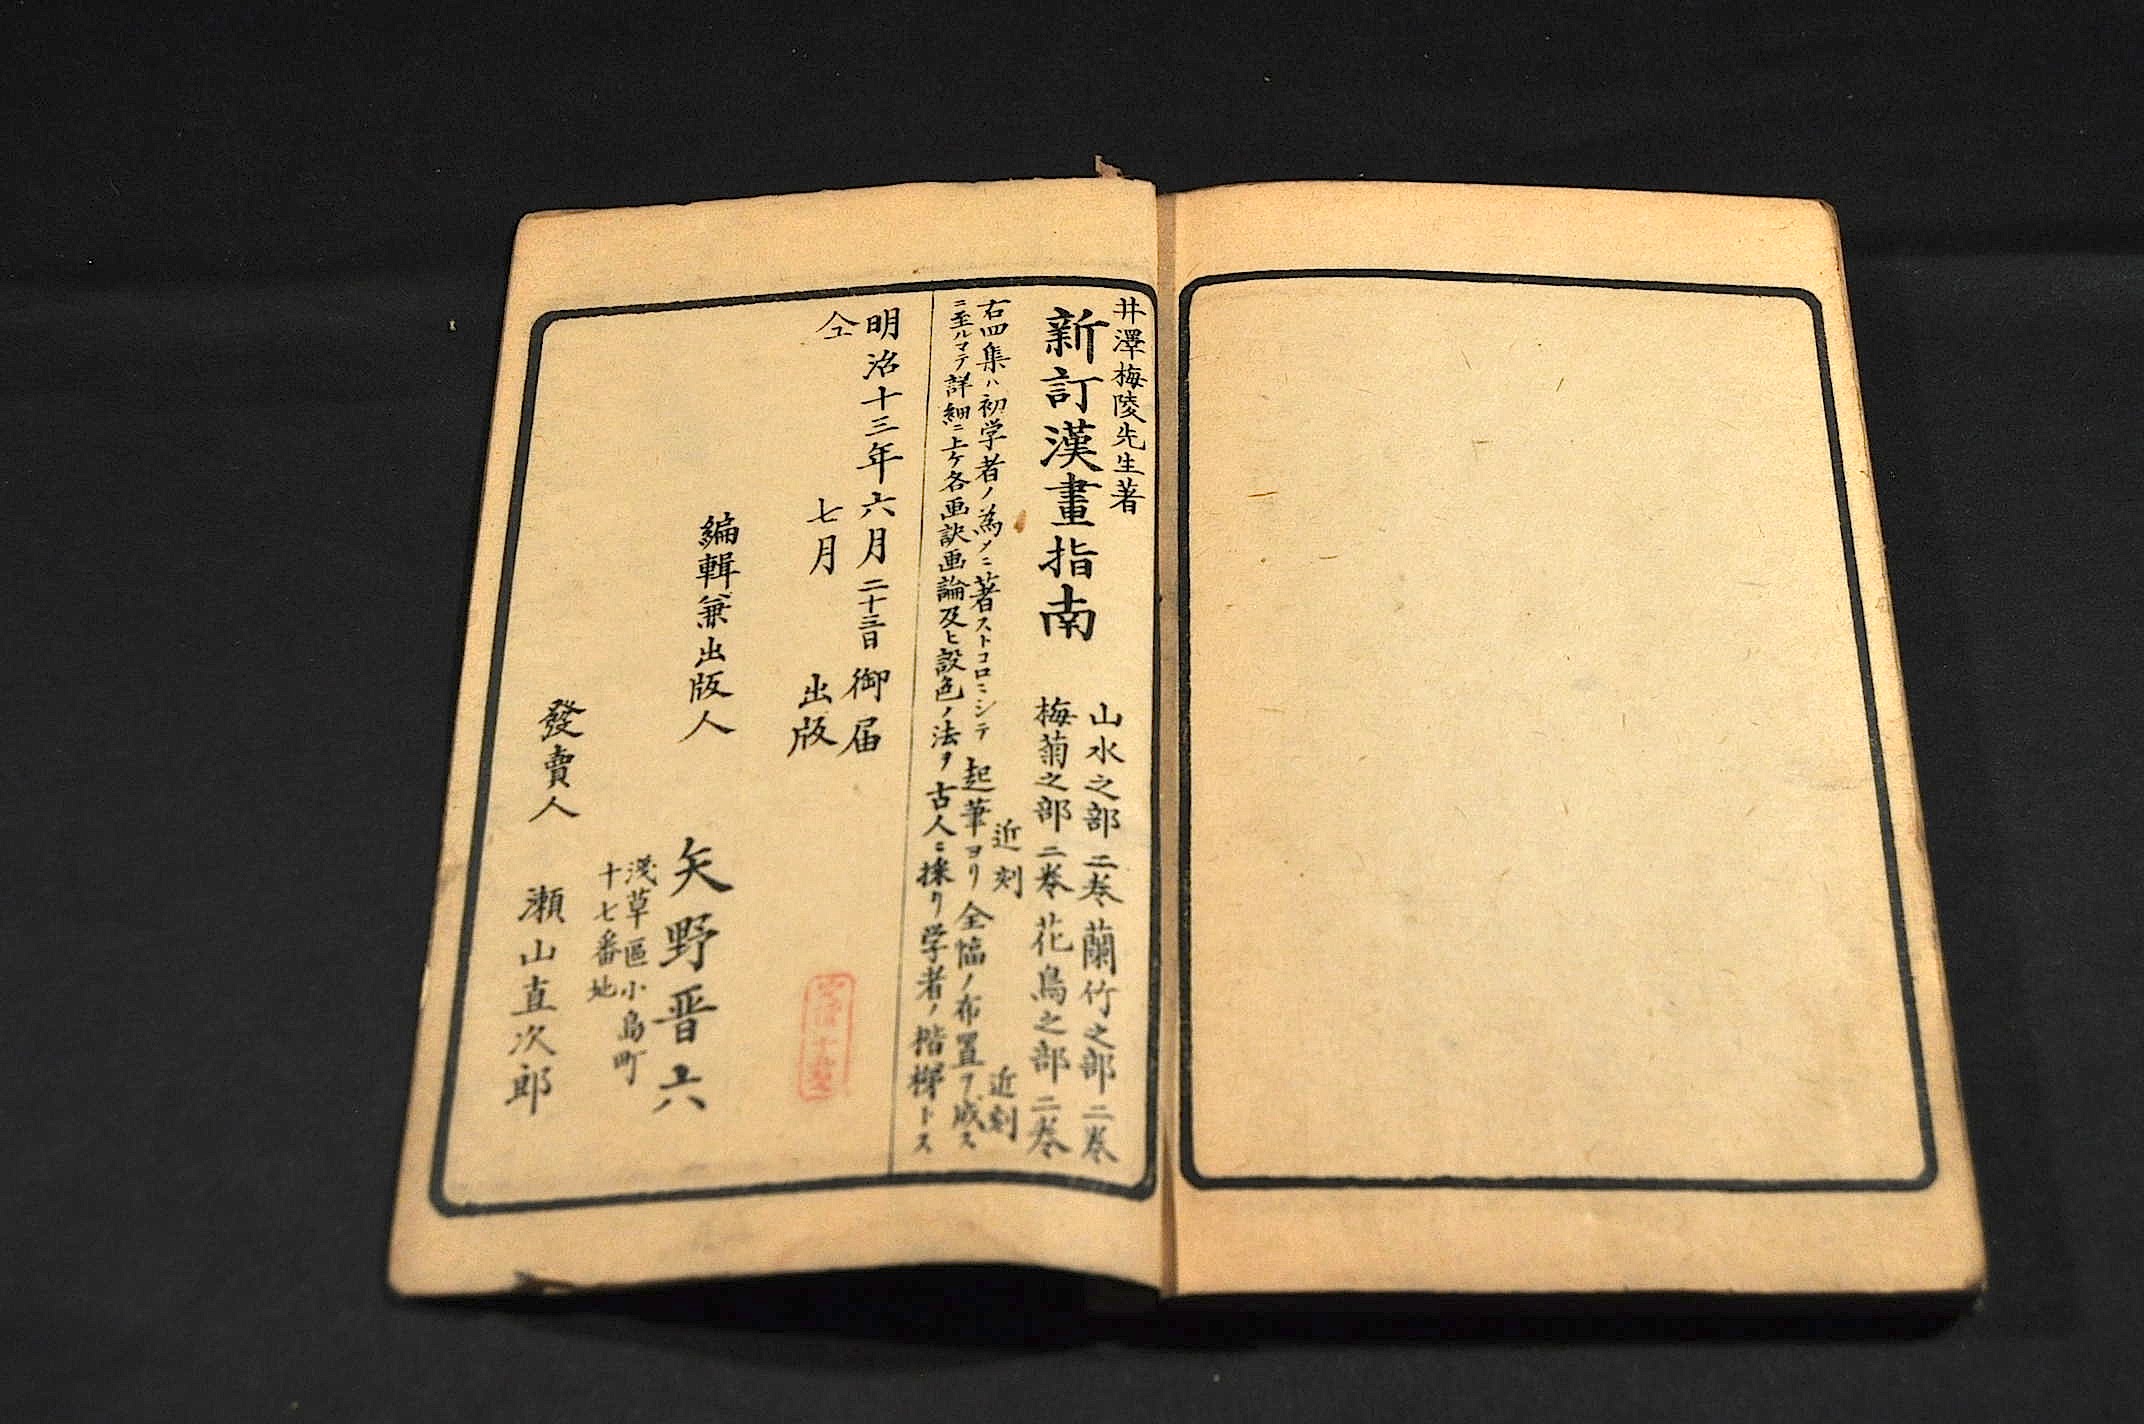 井澤梅陵先生著
新訂漢畫指南
山水之部二巻 蘭竹之部二巻
梅菊之部二巻 花鳥之部二巻
近刻 近刻
右四集ハ初学者ノ為メニ著ストコロニシテ 起筆ヨリ全幅ノ布置ヲ成ス
ニ至ルマテ詳細ニ上ケ各画訣画論及ヒ設色ノ法ヲ古人ニ採リ学者ノ楷梯トス
明治十三年六月二十三日御届
仝 七月 出版
編輯兼出版人 矢野晋六
淺草區小島町
十七番地
發賣人 瀬山直次郎